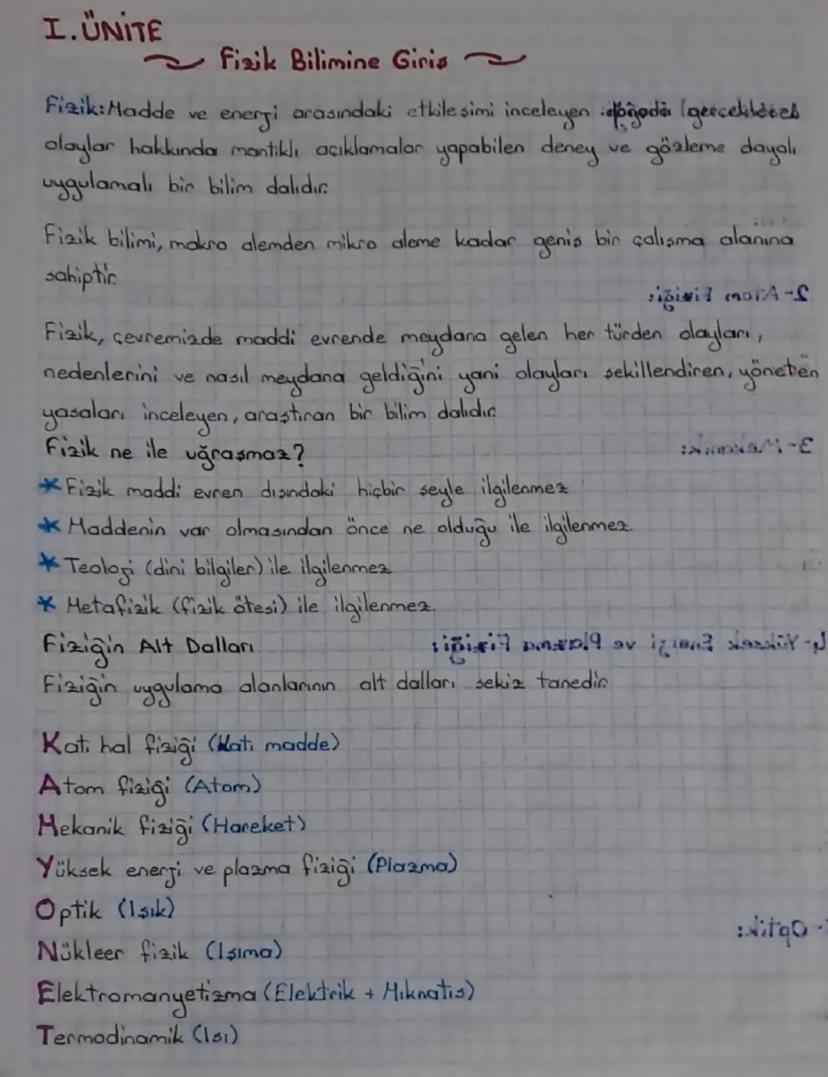 I. ÜNİTE
Fizik Bilimine Giriş
Fizik: Madde ve enerji arasındaki etkileşimi inceleyen doğada gerçekleşen
olaylar hakkında mantıklı açıklamalar yapabilen deney ve gözleme dayalı
uygulamalı bir bilim dalıdır.
Fizik bilimi, makro alemden mikro aleme kadar geniş bir çalışma alanına
sahiptir.
2- Atom Fiziği:
Fizik, çevremizde maddi evrende meydana gelen her türden olayları,
nedenlerini ve nasıl meydana geldiğini yani olayları şekillendiren, yöneten
yasaları inceleyen, araştıran bir bilim dalıdır.
Fizik ne ile uğraşmaz?
3- Mekanik:
* Fizik maddi evren dışındaki hiçbir şeyle ilgilenmez
* Maddenin var olmasından önce ne olduğu ile ilgilenmez.
* Teoloji (dini bilgiler) ile ilgilenmez
* Metafizik (fizik ötesi) ile ilgilenmez.
Fiziğin Alt Dalları
4- Yüksek Enerji ve Plazma Fiziği:
Fiziğin uygulama alanlarının alt dalları sekiz tanedir.
Katı hal fiziği (Katı madde)
Atom fiziği (Atom)
Mekanik fiziği (Hareket)
Yüksek enerji ve plazma fiziği (Plazma)
Optik (Işık)
- Optik:
Nükleer fizik (Işıma)
Elektromanyetizma (Elektrik + Mıknatıs)
Termodinamik (Isı)